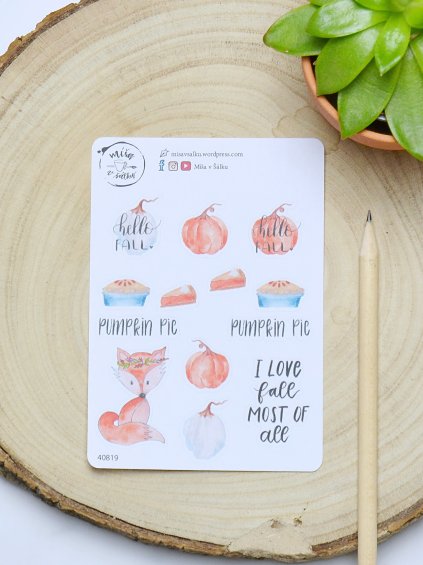 miša
v šálku
misavsalku.wordpress.com
Míša v Šálku
hello
FALL
hello
FALL
PUMPKIN PIE
PUMPKIN PIE
I LOVE
fall
MOST OF
all
40819